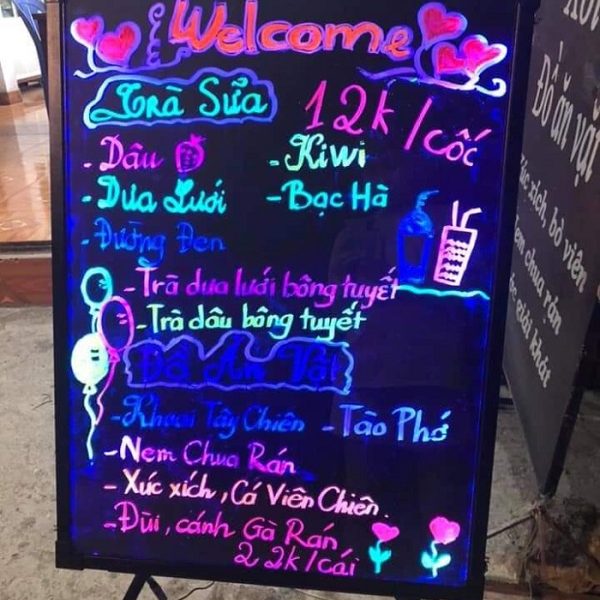 Welcome
Trà Sửa
12k/cốc
- Dâu - Kiwi
- Dưa Lưới - Bạc Hà
- Đường Đen
- Trà dưa lưới bông tuyết
- Trà dâu bông tuyết
Đồ Ăn Vặt
- Khoai Tây Chiên - Tào Phớ
- Nem Chua Rán
- Xúc xích, Cá Viên Chiên.
- Đùi, cánh Gà Rán
22k/cái
Đồ ăn vặt
xích, bò viên
chua rán
giải khát